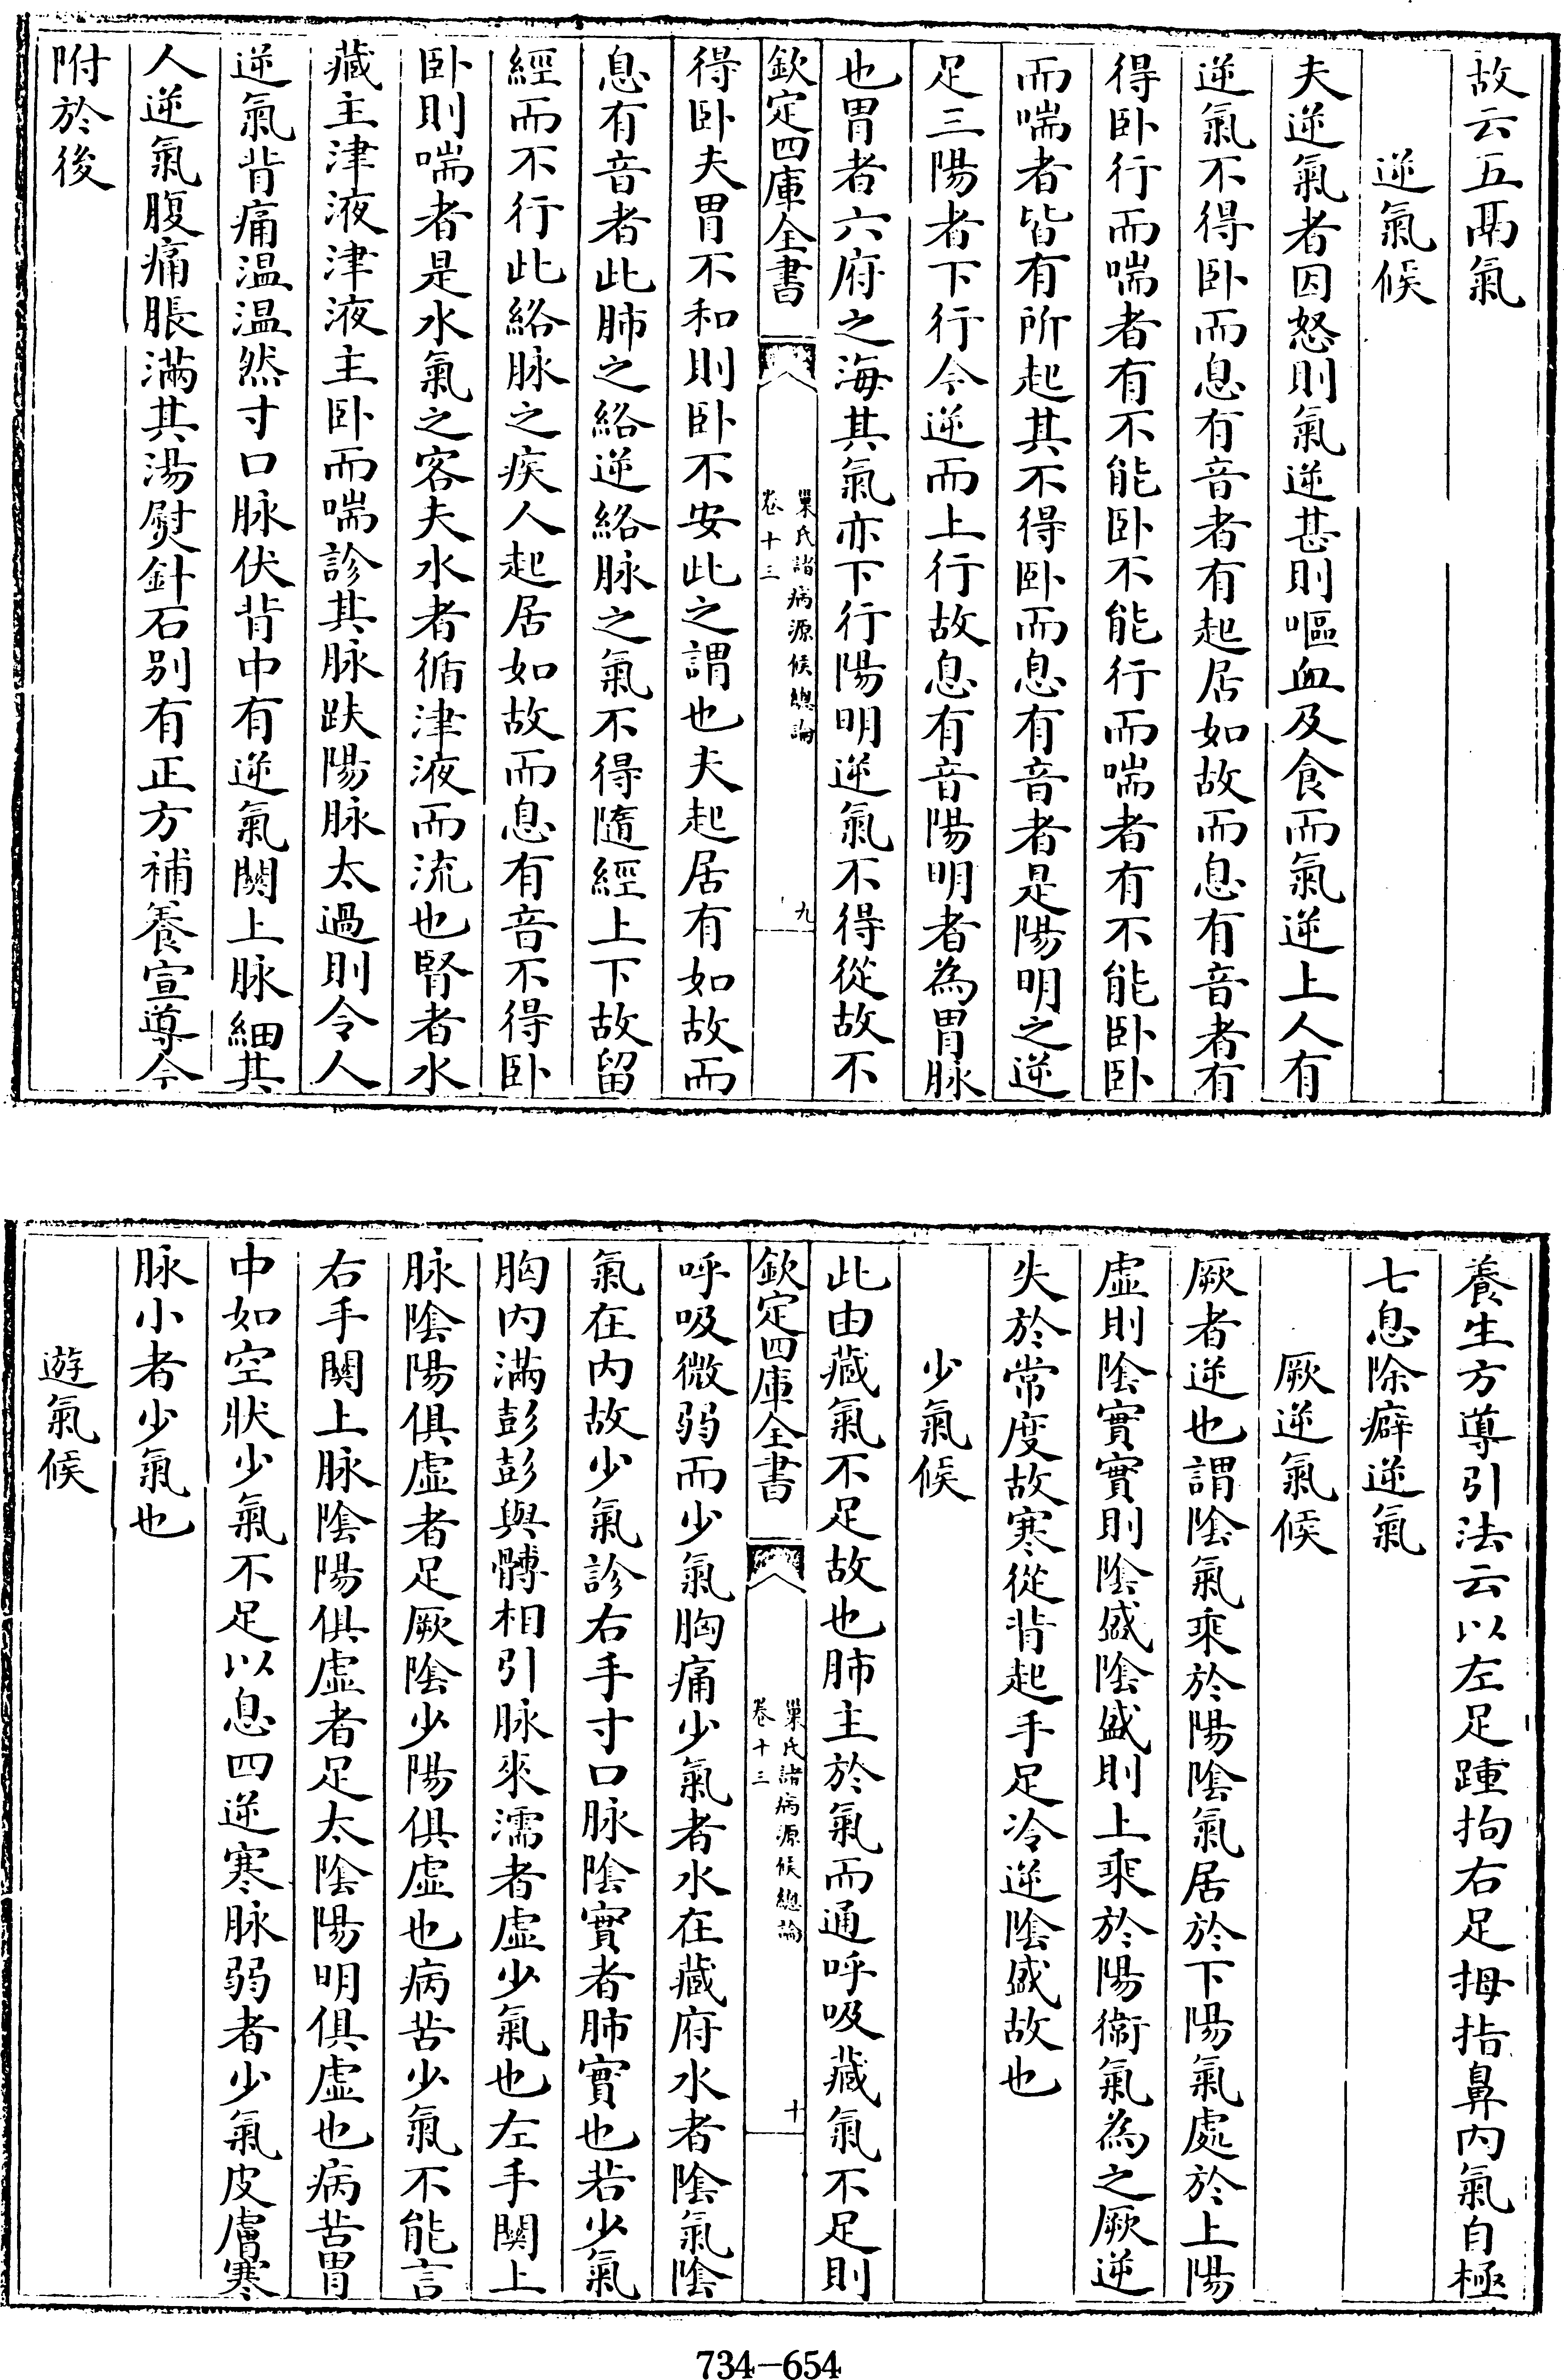 故云五鬲氣
逆氣候
夫逆氣者因怒則氣逆甚則嘔血及食而氣逆上人有
逆氣不得卧而息有音者有起居如故而息有音者有
得卧行而喘者有不能卧不能行而喘者有不能卧卧
而喘者皆有所起其不得卧而息有音者是陽明之逆
足三陽者下行今逆而上行故息有音陽明者為胃脉
也胃者六府之海其氣亦下行陽明逆氣不得從故不
欽定四庫全書
巢氏諸病源候總論
卷十三
九
得卧夫胃不和則卧不安此之謂也夫起居有如故而
息有音者此肺之絡逆絡脉之氣不得隨經上下故留
經而不行此絡脉之疾人起居如故而息有音不得卧
卧則喘者是水氣之客夫水者循津液而流也腎者水
藏主津液津液主卧而喘診其脉趺陽脉太過則令人
逆氣背痛温温然寸口脉伏背中有逆氣關上脉細其
人逆氣腹痛脹滿其湯熨針石别有正方補養宣導今
附於後
養生方導引法云以左足踵拘右足拇指鼻内氣自極
七息除癖逆氣
厥逆氣候
厥者逆也謂陰氣乘於陽陰氣居於下陽氣處於上陽
虚則陰實實則陰盛陰盛則上乘於陽衛氣為之厥逆
失於常度故寒從背起手足冷逆陰盛故也
少氣候
此由藏氣不足故也肺主於氣而通呼吸藏氣不足則
欽定四庫全書
巢氏諸病源候總論
卷十三
十
呼吸微弱而少氣胸痛少氣者水在藏府水者陰氣陰
氣在内故少氣診右手寸口脉陰實者肺實也若少氣
胸内滿彭彭與髆相引脉來濡者虚少氣也左手關上
脉陰陽俱虚者足厥陰少陽俱虚也病苦少氣不能言
右手關上脉陰陽俱虚者足太陰陽明俱虚也病苦胃
中如空狀少氣不足以息四逆寒脉弱者少氣皮膚寒
脉小者少氣也
遊氣候
734-654